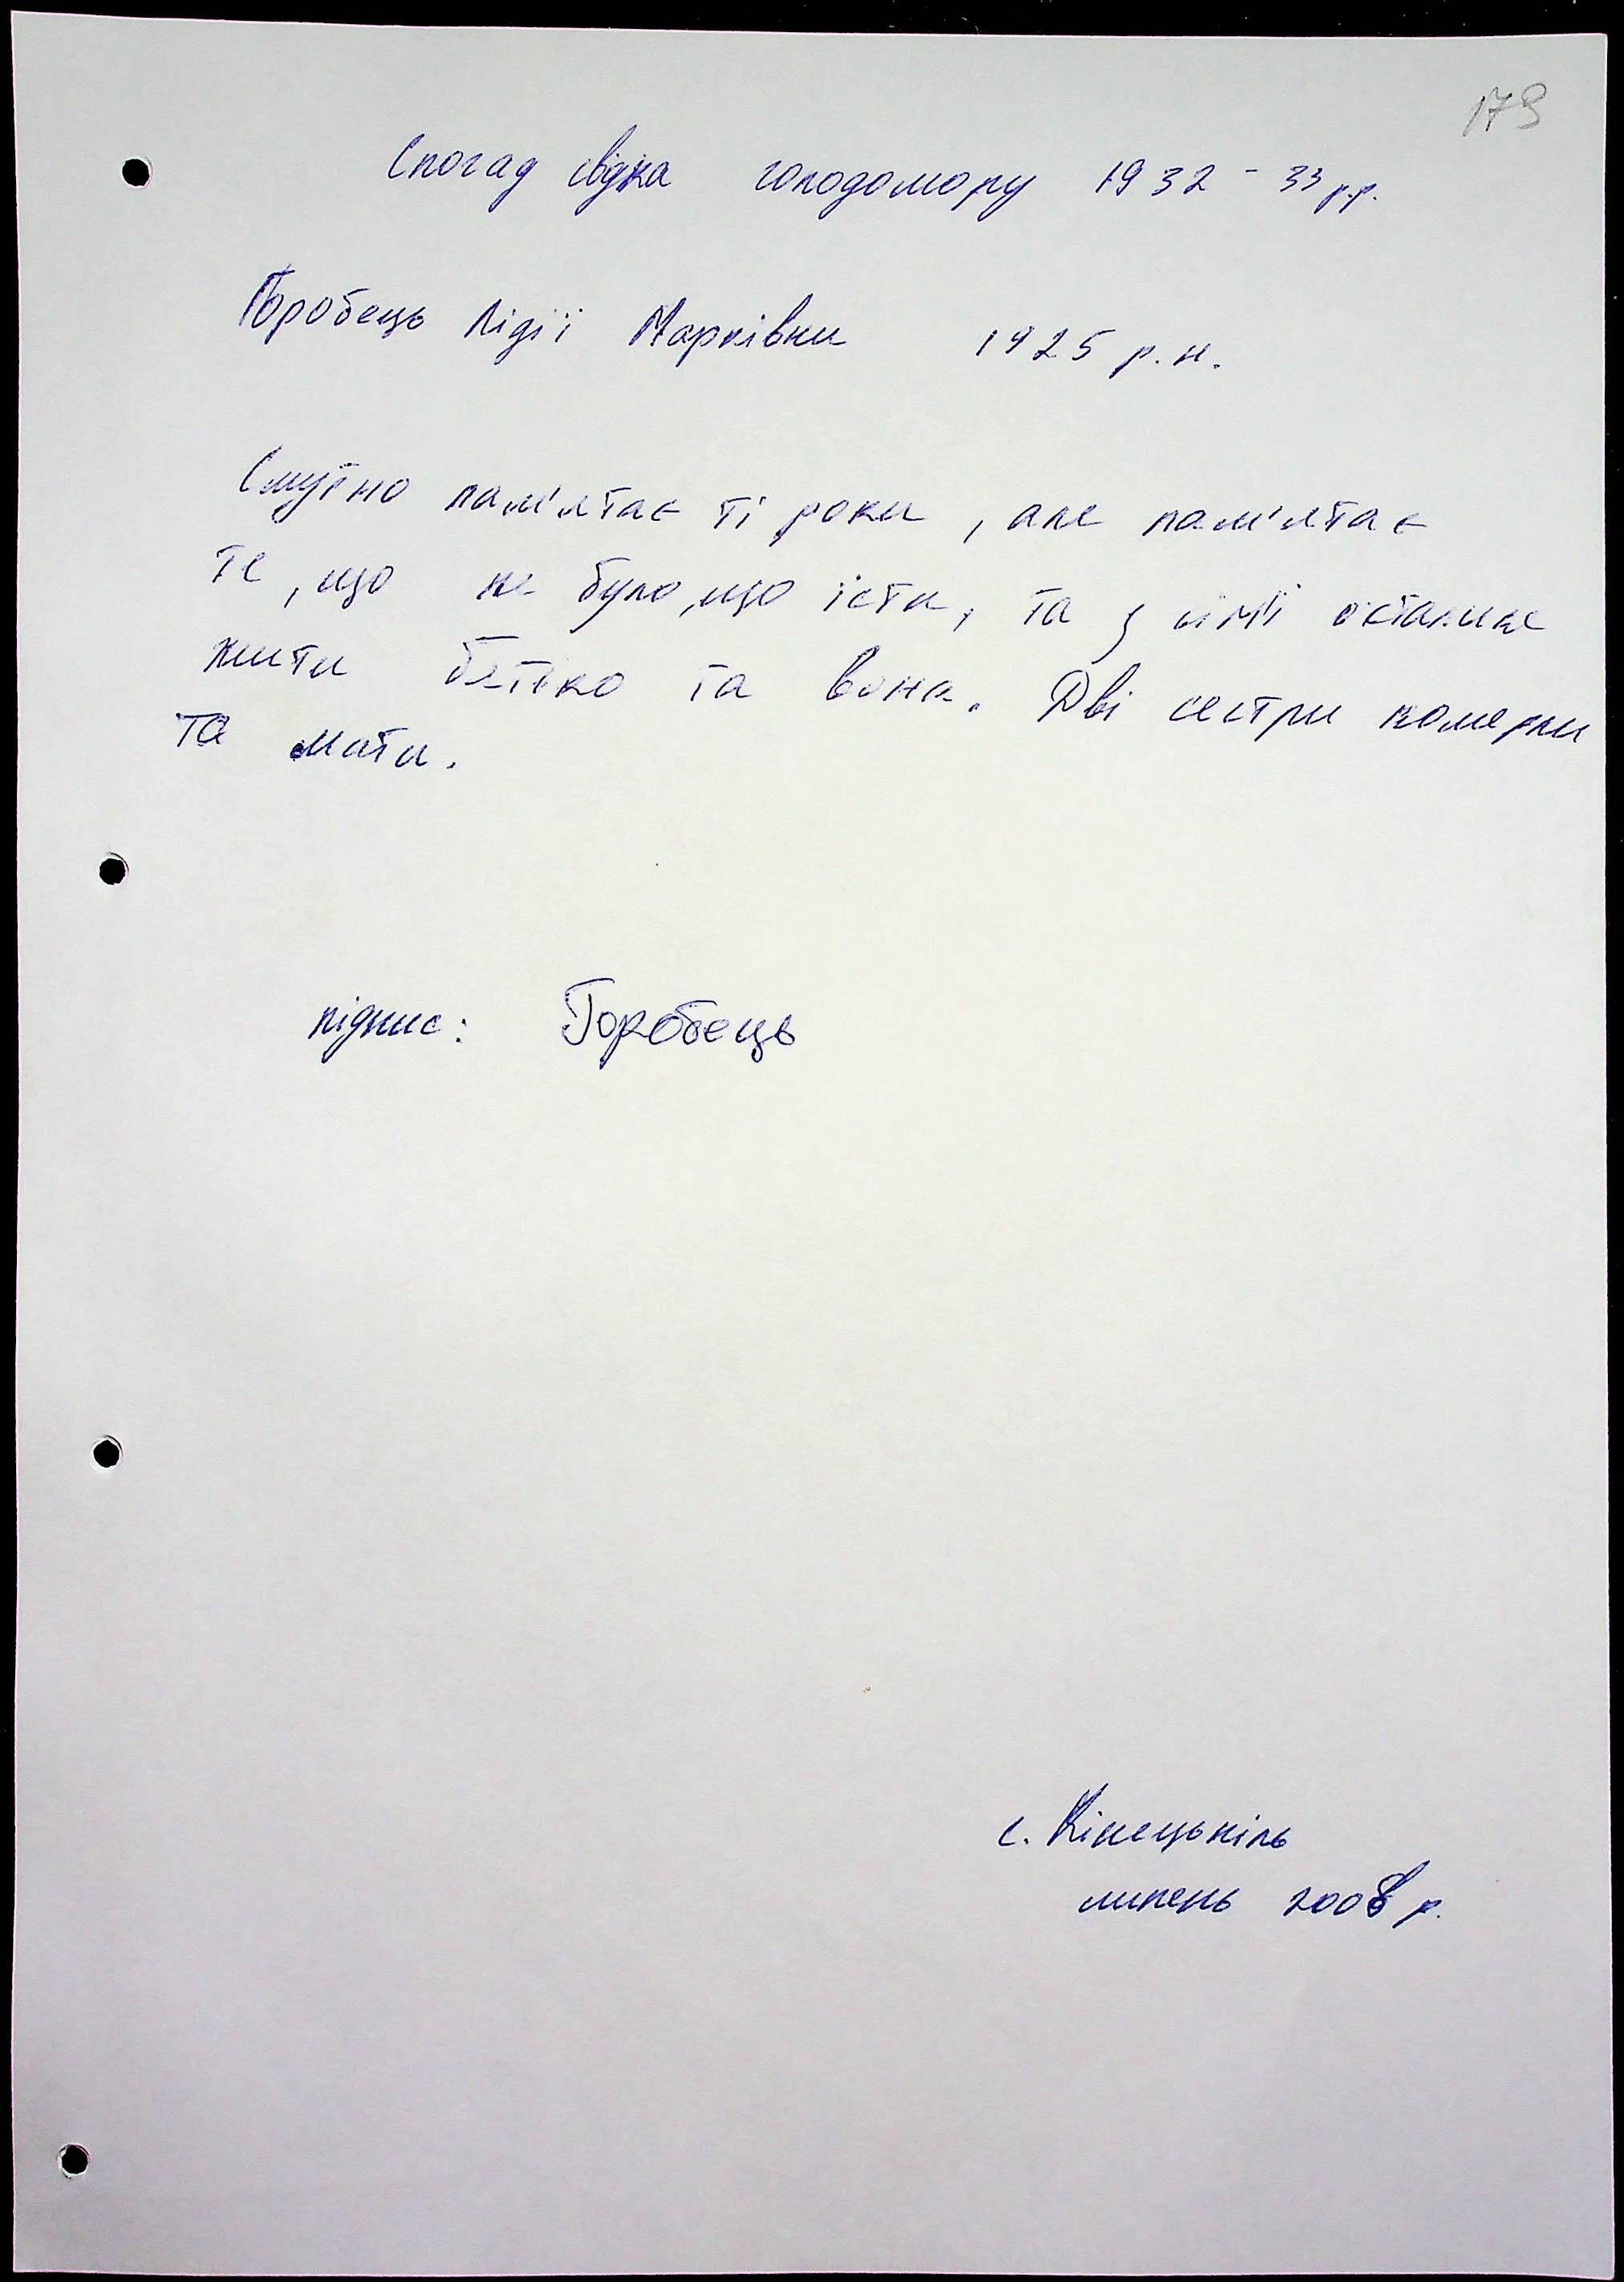 173
Спогад свідка голодомору 1932-33 р.р.
Горобець Лідії Марківни 1925 р.н.
Смутно пам'ятає ті роки, але пам'ятає
те, що не було, що їсти, та з сім'ї
жити батько та вона. Дві сестри померли
та мати.
підпис: Горобець
с. Кінецьпіль
липень 2008 р.